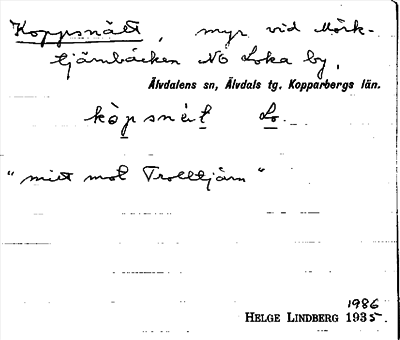 Koppsnätt, myr vid Mörk-
tjärnbäcken NO Loka by,
Älvdalens sn, Älvdals tg. Kopparbergs län.
kòpsnèt Lo.
"mitt mot Trolltjärn"
1986
HELGE LINDBERG 1935.